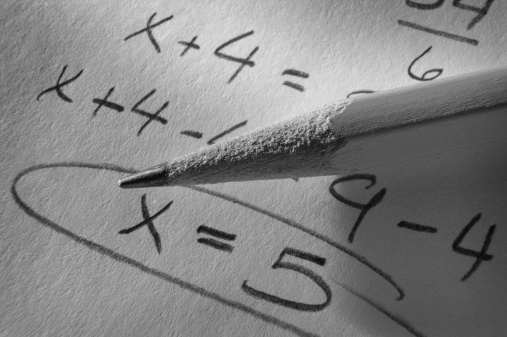 x + 4 =
54
6
x + 4 -
9 - 4
x = 5